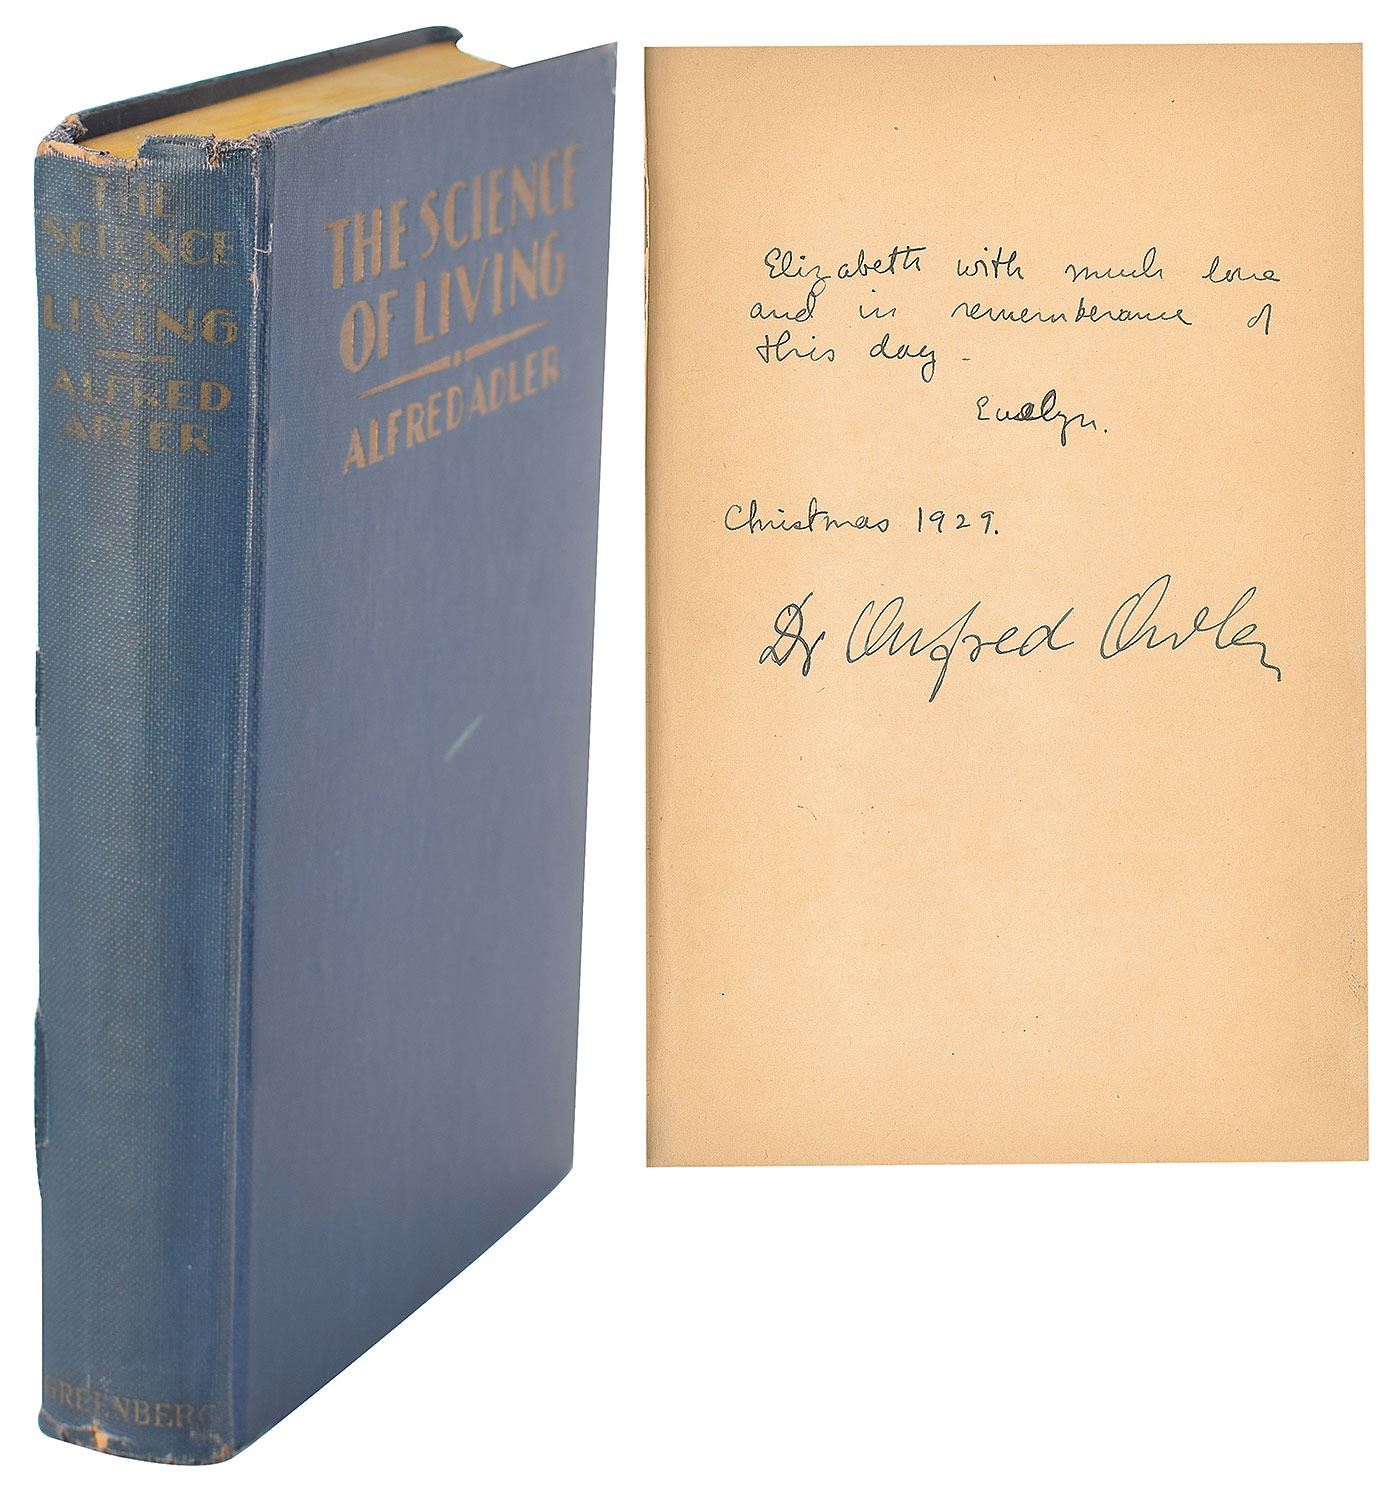 THE
SCIENCE
OF
LIVING
ALFRED
ADLER
GREENBERG
THE SCIENCE
OF LIVING
ALFRED ADLER
Elizabeth with much love
and in rememberance of
this day -
Evelyn.
Christmas 1929.
Dr Alfred Adler